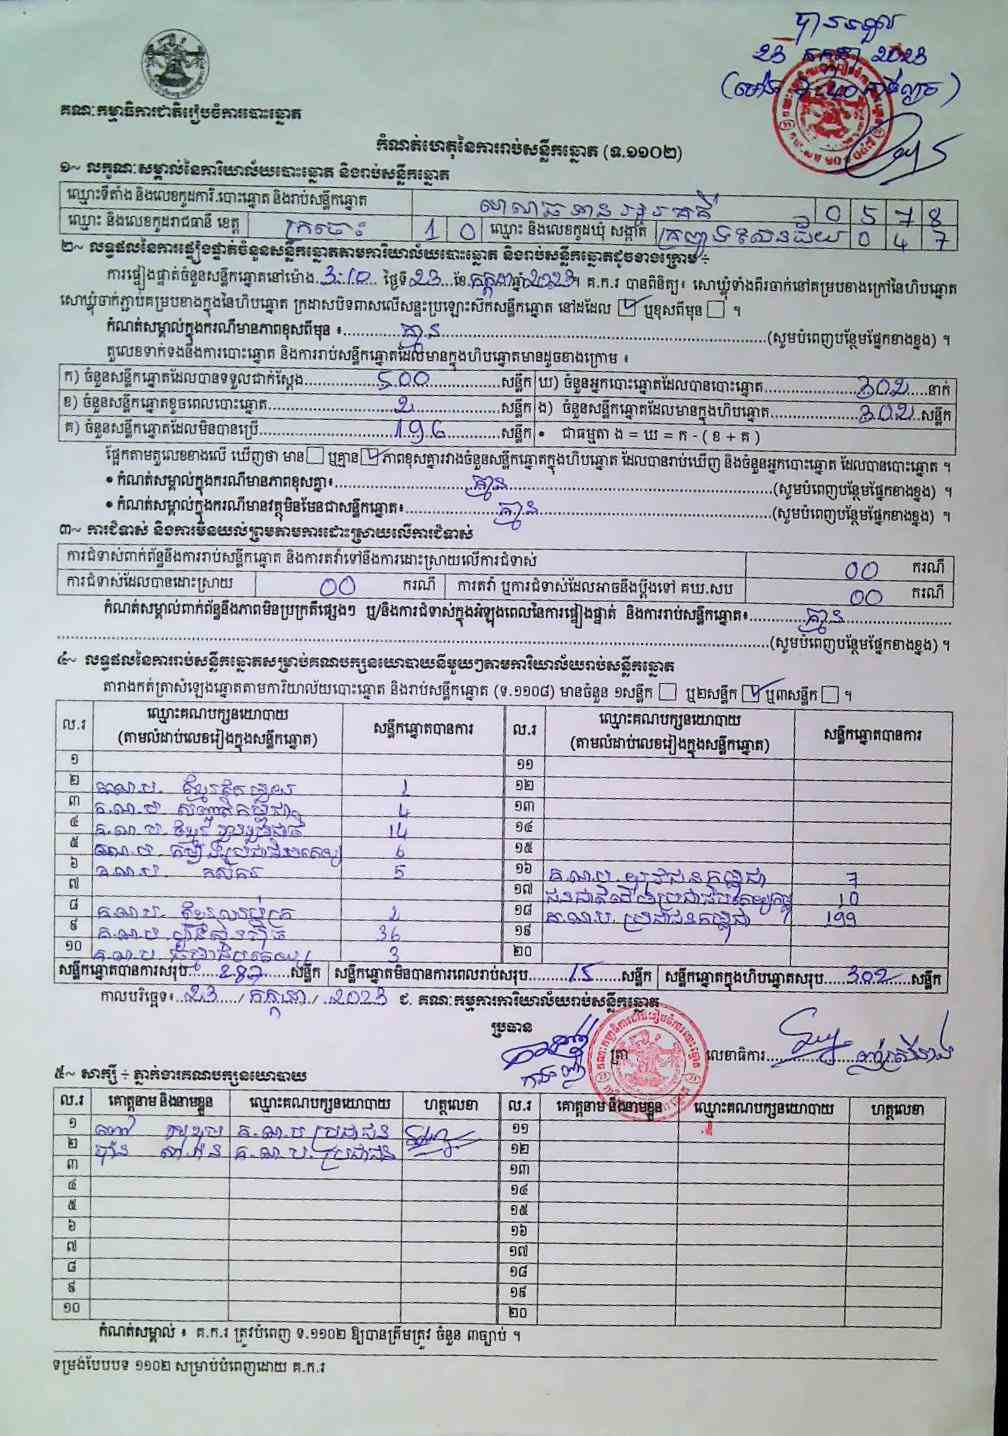 បានទទួល
23 កក្កដា 2023
គណៈកម្មាធិការជាតិរៀបចំការបោះឆ្នោត
កំណត់ហេតុនៃការរាប់សន្លឹកឆ្នោត (ទ.១១០២)
១~ លក្ខណៈសម្គាល់នៃការិយាល័យបោះឆ្នោត និងរាប់សន្លឹកឆ្នោត
ឈ្មោះទីតាំង និងលេខកូដការិ.បោះឆ្នោត និងរាប់សន្លឹកឆ្នោត 0 5 7 8
ឈ្មោះ និងលេខកូដរាជធានី ខេត្ត ក្រចេះ 1 0 ឈ្មោះ និងលេខកូដឃុំ សង្កាត់ 0 4 7
២~ លទ្ធផលនៃការផ្ទៀងផ្ទាត់ចំនួនសន្លឹកឆ្នោតតាមការិយាល័យបោះឆ្នោត និងរាប់សន្លឹកឆ្នោតដូចខាងក្រោម ÷
ការផ្ទៀងផ្ទាត់ចំនួនសន្លឹកឆ្នោតនៅម៉ោង 3:10 ថ្ងៃទី 23 ខែ កក្កដា ឆ្នាំ 2023 ។ គ.ក.រ បានពិនិត្យ៖ សោឃ្លុំទាំងពីរចាក់នៅគម្របខាងក្រៅនៃហិបឆ្នោត
សោឃ្លុំចាក់ភ្ជាប់គម្របខាងក្នុងនៃហិបឆ្នោត ក្រដាសបិទពាសលើសន្ទះប្រឡោះស៊កសន្លឹកឆ្នោត នៅដដែល ☑ ឬខុសពីមុន ☐ ។
កំណត់សម្គាល់ក្នុងករណីមានភាពខុសពីមុន ៖ គ្មាន (សូមបំពេញបន្ថែមផ្នែកខាងខ្នង) ។
តួលេខទាក់ទងនឹងការបោះឆ្នោត និងការរាប់សន្លឹកឆ្នោតដែលមានក្នុងហិបឆ្នោតមានដូចខាងក្រោម ៖
ក) ចំនួនសន្លឹកឆ្នោតដែលបានទទួលជាក់ស្តែង 500 សន្លឹក ឃ) ចំនួនអ្នកបោះឆ្នោតដែលបានបោះឆ្នោត 302 នាក់
ខ) ចំនួនសន្លឹកឆ្នោតខូចពេលបោះឆ្នោត 2 សន្លឹក ង) ចំនួនសន្លឹកឆ្នោតដែលមានក្នុងហិបឆ្នោត 302 សន្លឹក
គ) ចំនួនសន្លឹកឆ្នោតដែលមិនបានប្រើ 196 សន្លឹក • ជាធម្មតា ង = ឃ = ក - ( ខ + គ )
ផ្អែកតាមតួលេខខាងលើ ឃើញថា មាន ☐ ឬគ្មាន ☑ ភាពខុសគ្នារវាងចំនួនសន្លឹកឆ្នោតក្នុងហិបឆ្នោត ដែលបានរាប់ឃើញ និងចំនួនអ្នកបោះឆ្នោត ដែលបានបោះឆ្នោត ។
• កំណត់សម្គាល់ក្នុងករណីមានភាពខុសគ្នា៖ គ្មាន (សូមបំពេញបន្ថែមផ្នែកខាងខ្នង) ។
• កំណត់សម្គាល់ក្នុងករណីមានវត្ថុមិនមែនជាសន្លឹកឆ្នោត៖ គ្មាន (សូមបំពេញបន្ថែមផ្នែកខាងខ្នង) ។
៣~ ការជំទាស់ និងការមិនយល់ព្រមតាមការដោះស្រាយលើការជំទាស់
ការជំទាស់ពាក់ព័ន្ធនឹងការរាប់សន្លឹកឆ្នោត និងការតវ៉ាទៅនឹងការដោះស្រាយលើការជំទាស់ 00 ករណី
ការជំទាស់ដែលបានដោះស្រាយ 00 ករណី ការតវ៉ា ឬការជំទាស់ដែលអាចនឹងប្តឹងទៅ គឃ.សប 00 ករណី
កំណត់សម្គាល់ពាក់ព័ន្ធនឹងភាពមិនប្រក្រតីផ្សេងៗ ឬ/និងការជំទាស់ក្នុងអំឡុងពេលនៃការផ្ទៀងផ្ទាត់ និងការរាប់សន្លឹកឆ្នោត៖ គ្មាន
(សូមបំពេញបន្ថែមផ្នែកខាងខ្នង) ។
៤~ លទ្ធផលនៃការរាប់សន្លឹកឆ្នោតសម្រាប់គណបក្សនយោបាយនីមួយៗតាមការិយាល័យរាប់សន្លឹកឆ្នោត
តារាងកត់ត្រាសំឡេងឆ្នោតតាមការិយាល័យបោះឆ្នោត និងរាប់សន្លឹកឆ្នោត (ទ.១១០៨) មានចំនួន ១សន្លឹក ☐ ឬ២សន្លឹក ☑ ឬ៣សន្លឹក ☐ ។
ល.រ ឈ្មោះគណបក្សនយោបាយ (តាមលំដាប់លេខរៀងក្នុងសន្លឹកឆ្នោត) សន្លឹកឆ្នោតបានការ ល.រ ឈ្មោះគណបក្សនយោបាយ (តាមលំដាប់លេខរៀងក្នុងសន្លឹកឆ្នោត) សន្លឹកឆ្នោតបានការ
១ ១១
២ គ.ណ.ប. 1 ១២
៣ គ.ណ.ប 4 ១៣
៤ គ.ណ.ប 14 ១៤
៥ គ.ណ.ប 6 ១៥
៦ គ.ណ.ប. កសិករ 5 ១៦ គ.ណ.ប. យុវជនកម្ពុជា 7
៧ ១៧ 10
៨ គ.ណ.ប. 2 ១៨ គ.ណ.ប. ប្រជាជនកម្ពុជា 199
៩ គ.ណ.ប ហ្វ៊ុនស៊ិនប៉ិច 36 ១៩
១០ គ.ណ.ប 3 ២០
សន្លឹកឆ្នោតបានការសរុប 287 សន្លឹក សន្លឹកឆ្នោតមិនបានការពេលរាប់សរុប 15 សន្លឹក សន្លឹកឆ្នោតក្នុងហិបឆ្នោតសរុប 302 សន្លឹក
កាលបរិច្ឆេទ៖ 23 / កក្កដា / 2023 ជ. គណៈកម្មការការិយាល័យរាប់សន្លឹកឆ្នោត
ប្រធាន ត្រា លេខាធិការ
៥~ សាក្សី ÷ ភ្នាក់ងារគណបក្សនយោបាយ
ល.រ គោត្តនាម និងនាមខ្លួន ឈ្មោះគណបក្សនយោបាយ ហត្ថលេខា ល.រ គោត្តនាម និងនាមខ្លួន ឈ្មោះគណបក្សនយោបាយ ហត្ថលេខា
១ គ.ណ.ប ប្រជាជន ១១
២ គ.ណ.ប. ប្រជាជន ១២
៣ ១៣
៤ ១៤
៥ ១៥
៦ ១៦
៧ ១៧
៨ ១៨
៩ ១៩
១០ ២០
កំណត់សម្គាល់ ៖ គ.ក.រ ត្រូវបំពេញ ទ.១១០២ ឱ្យបានត្រឹមត្រូវ ចំនួន ៣ច្បាប់ ។
ទម្រង់បែបបទ ១១០២ សម្រាប់បំពេញដោយ គ.ក.រ